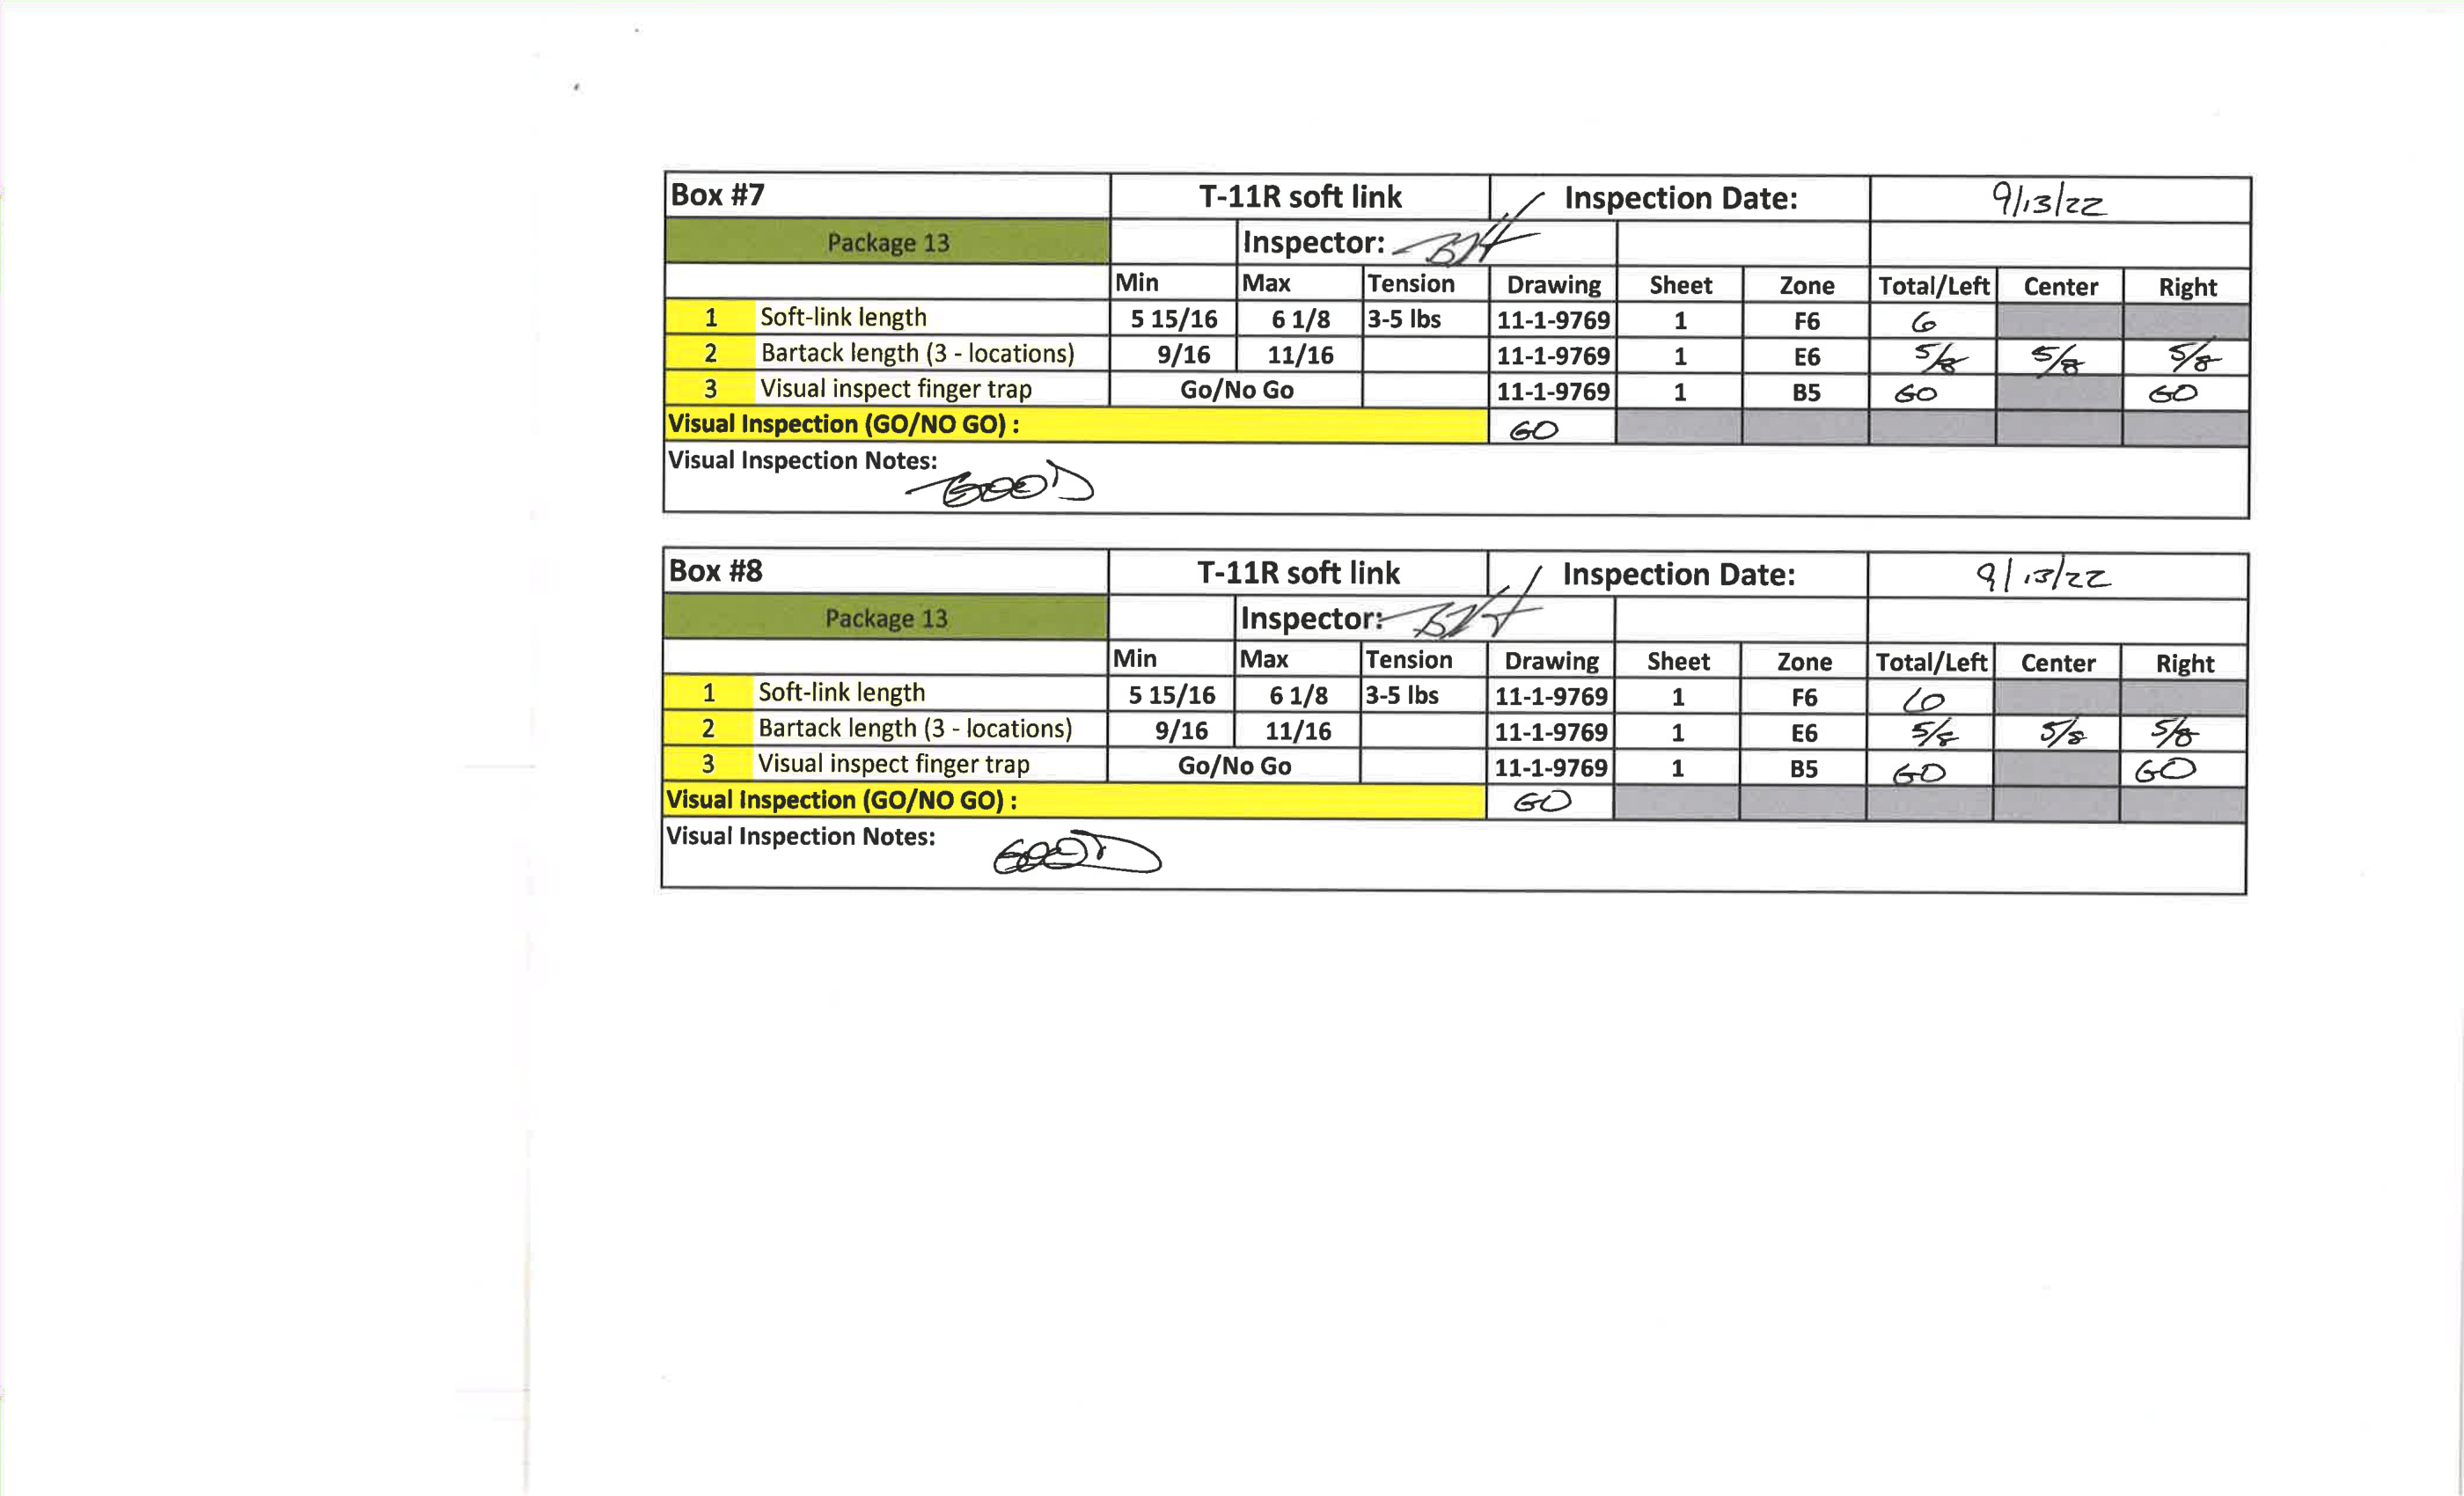 Box #7 T-11R soft link Inspection Date: 9/13/22
Package 13 Inspector: BH
Min Max Tension Drawing Sheet Zone Total/Left Center Right
1 Soft-link length 5 15/16 6 1/8 3-5 lbs 11-1-9769 1 F6 6
2 Bartack length (3 - locations) 9/16 11/16 11-1-9769 1 E6 5/8 5/8 5/8
3 Visual inspect finger trap Go/No Go 11-1-9769 1 B5 GO GO
Visual Inspection (GO/NO GO) : GO
Visual Inspection Notes: GOOD
Box #8 T-11R soft link Inspection Date: 9/13/22
Package 13 Inspector: BH
Min Max Tension Drawing Sheet Zone Total/Left Center Right
1 Soft-link length 5 15/16 6 1/8 3-5 lbs 11-1-9769 1 F6 6
2 Bartack length (3 - locations) 9/16 11/16 11-1-9769 1 E6 5/8 5/8 5/8
3 Visual inspect finger trap Go/No Go 11-1-9769 1 B5 GO GO
Visual Inspection (GO/NO GO) : GO
Visual Inspection Notes: GOOD